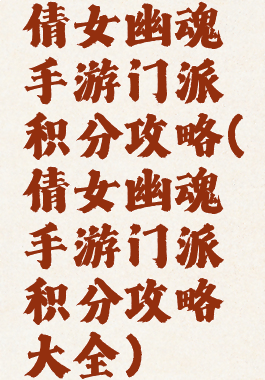 倩女幽魂
手游门派
积分攻略(
倩女幽魂
手游门派
积分攻略
大全)